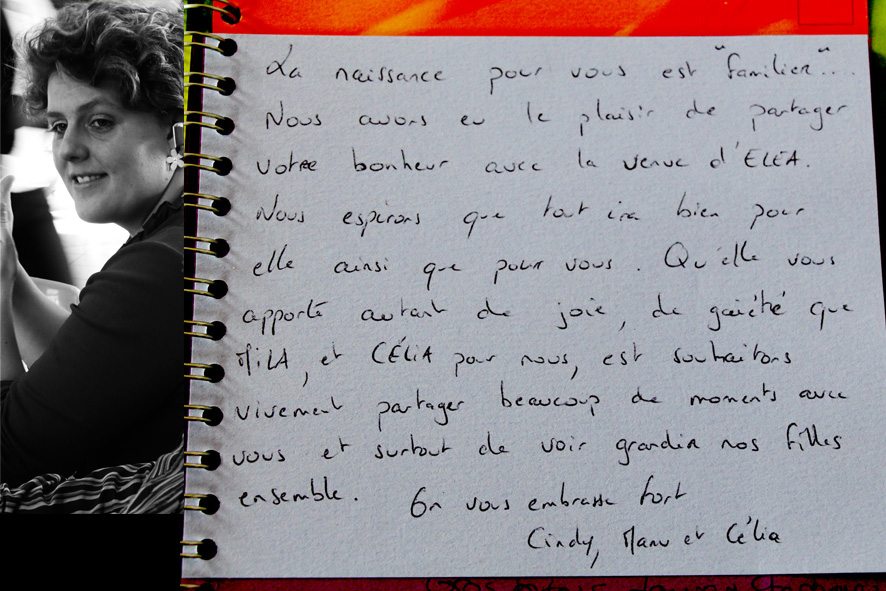 La naissance pour vous est "familier"...
Nous avons eu le plaisir de partager
votre bonheur avec la venue d'ELEA.
Nous espérons que tout ira bien pour
elle ainsi que pour vous. Qu'elle vous
apporte autant de joie, de gaiété que
MiLA, et CÉLiA pour nous, est souhaitons
vivement partager beaucoup de moments avec
vous et surtout de voir grandir nos filles
ensemble. On vous embrasse fort
Cindy, Manu et Célia